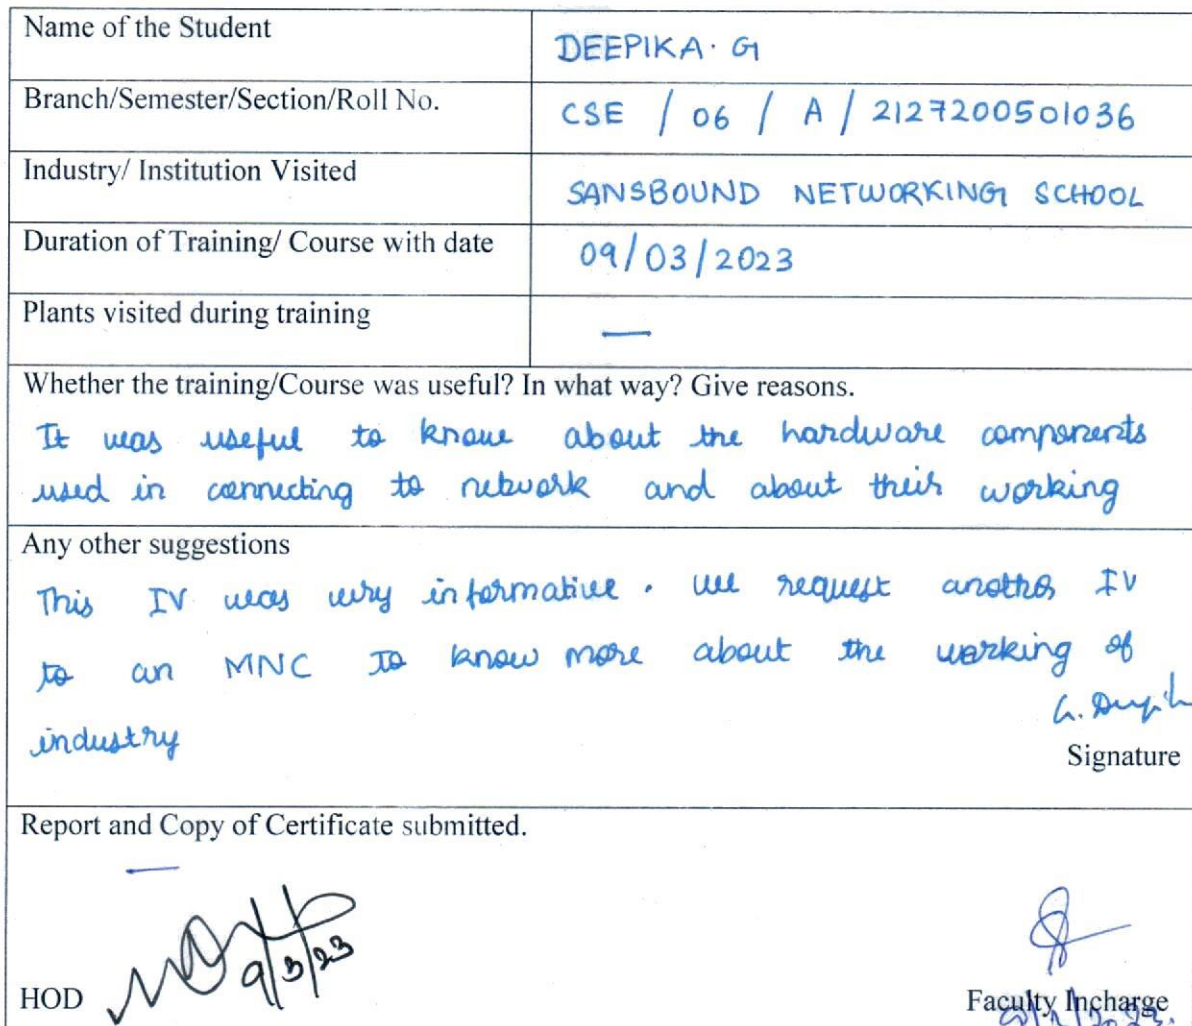 Name of the Student
DEEPIKA. G
Branch/Semester/Section/Roll No.
CSE / 06 / A / 212720050​1036
Industry/ Institution Visited
SANSBOUND NETWORKING SCHOOL
Duration of Training/ Course with date
09/03/2023
Plants visited during training
—
Whether the training/Course was useful? In what way? Give reasons.
It was useful to know about the hardware components
used in connecting to network and about their working
Any other suggestions
This IV was very informative. We request another IV
to an MNC to know more about the working of
industry
Signature
Report and Copy of Certificate submitted.
—
9/3/23
HOD
Faculty Incharge